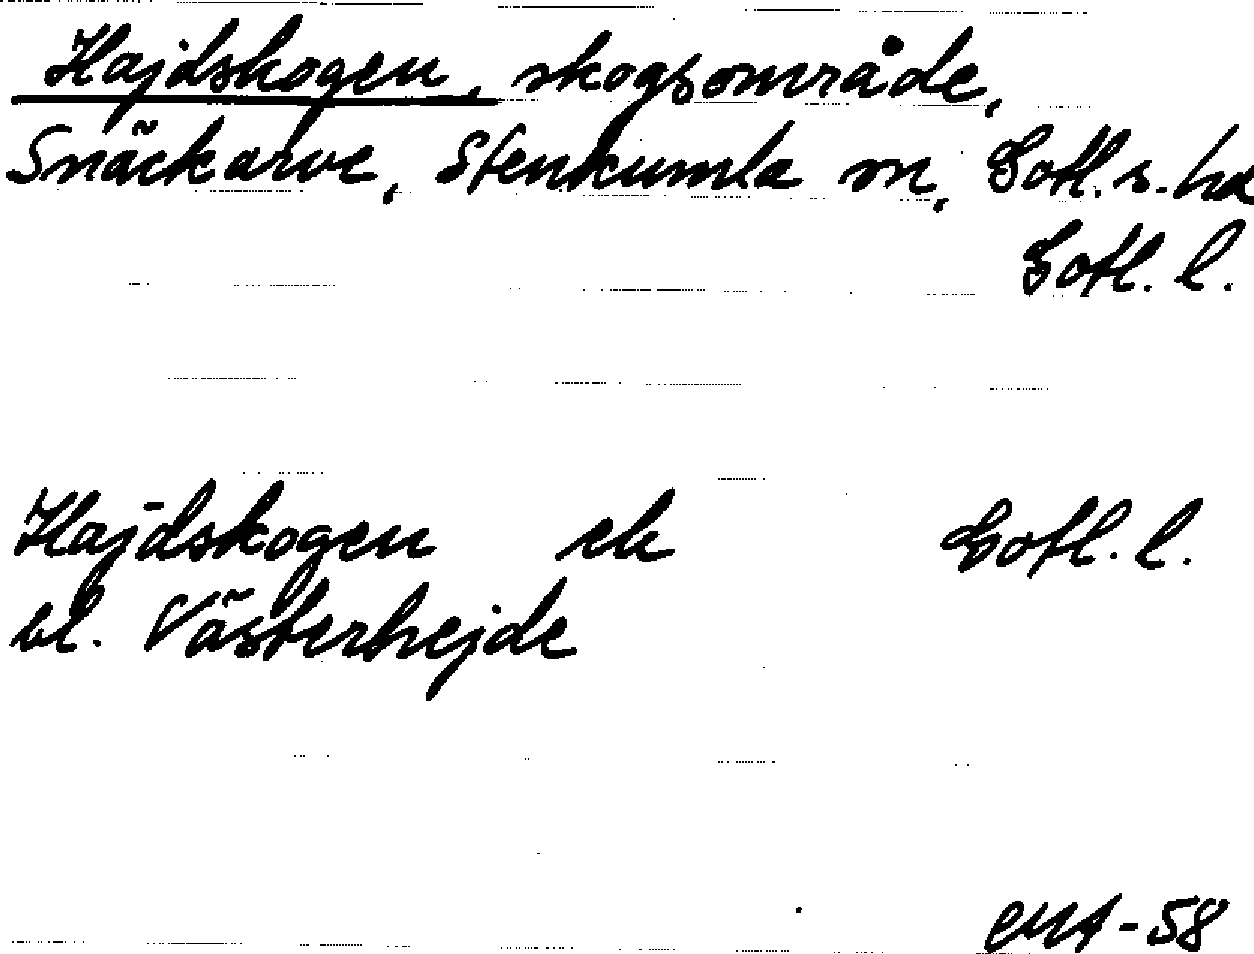 Hajdskogen, skogsområde,
Snäckarve, Stenkumla sn, Gotl. s. hd
Gotl. l.
Hajdskogen ek Gotl. l.
bl. Västerhejde
-58